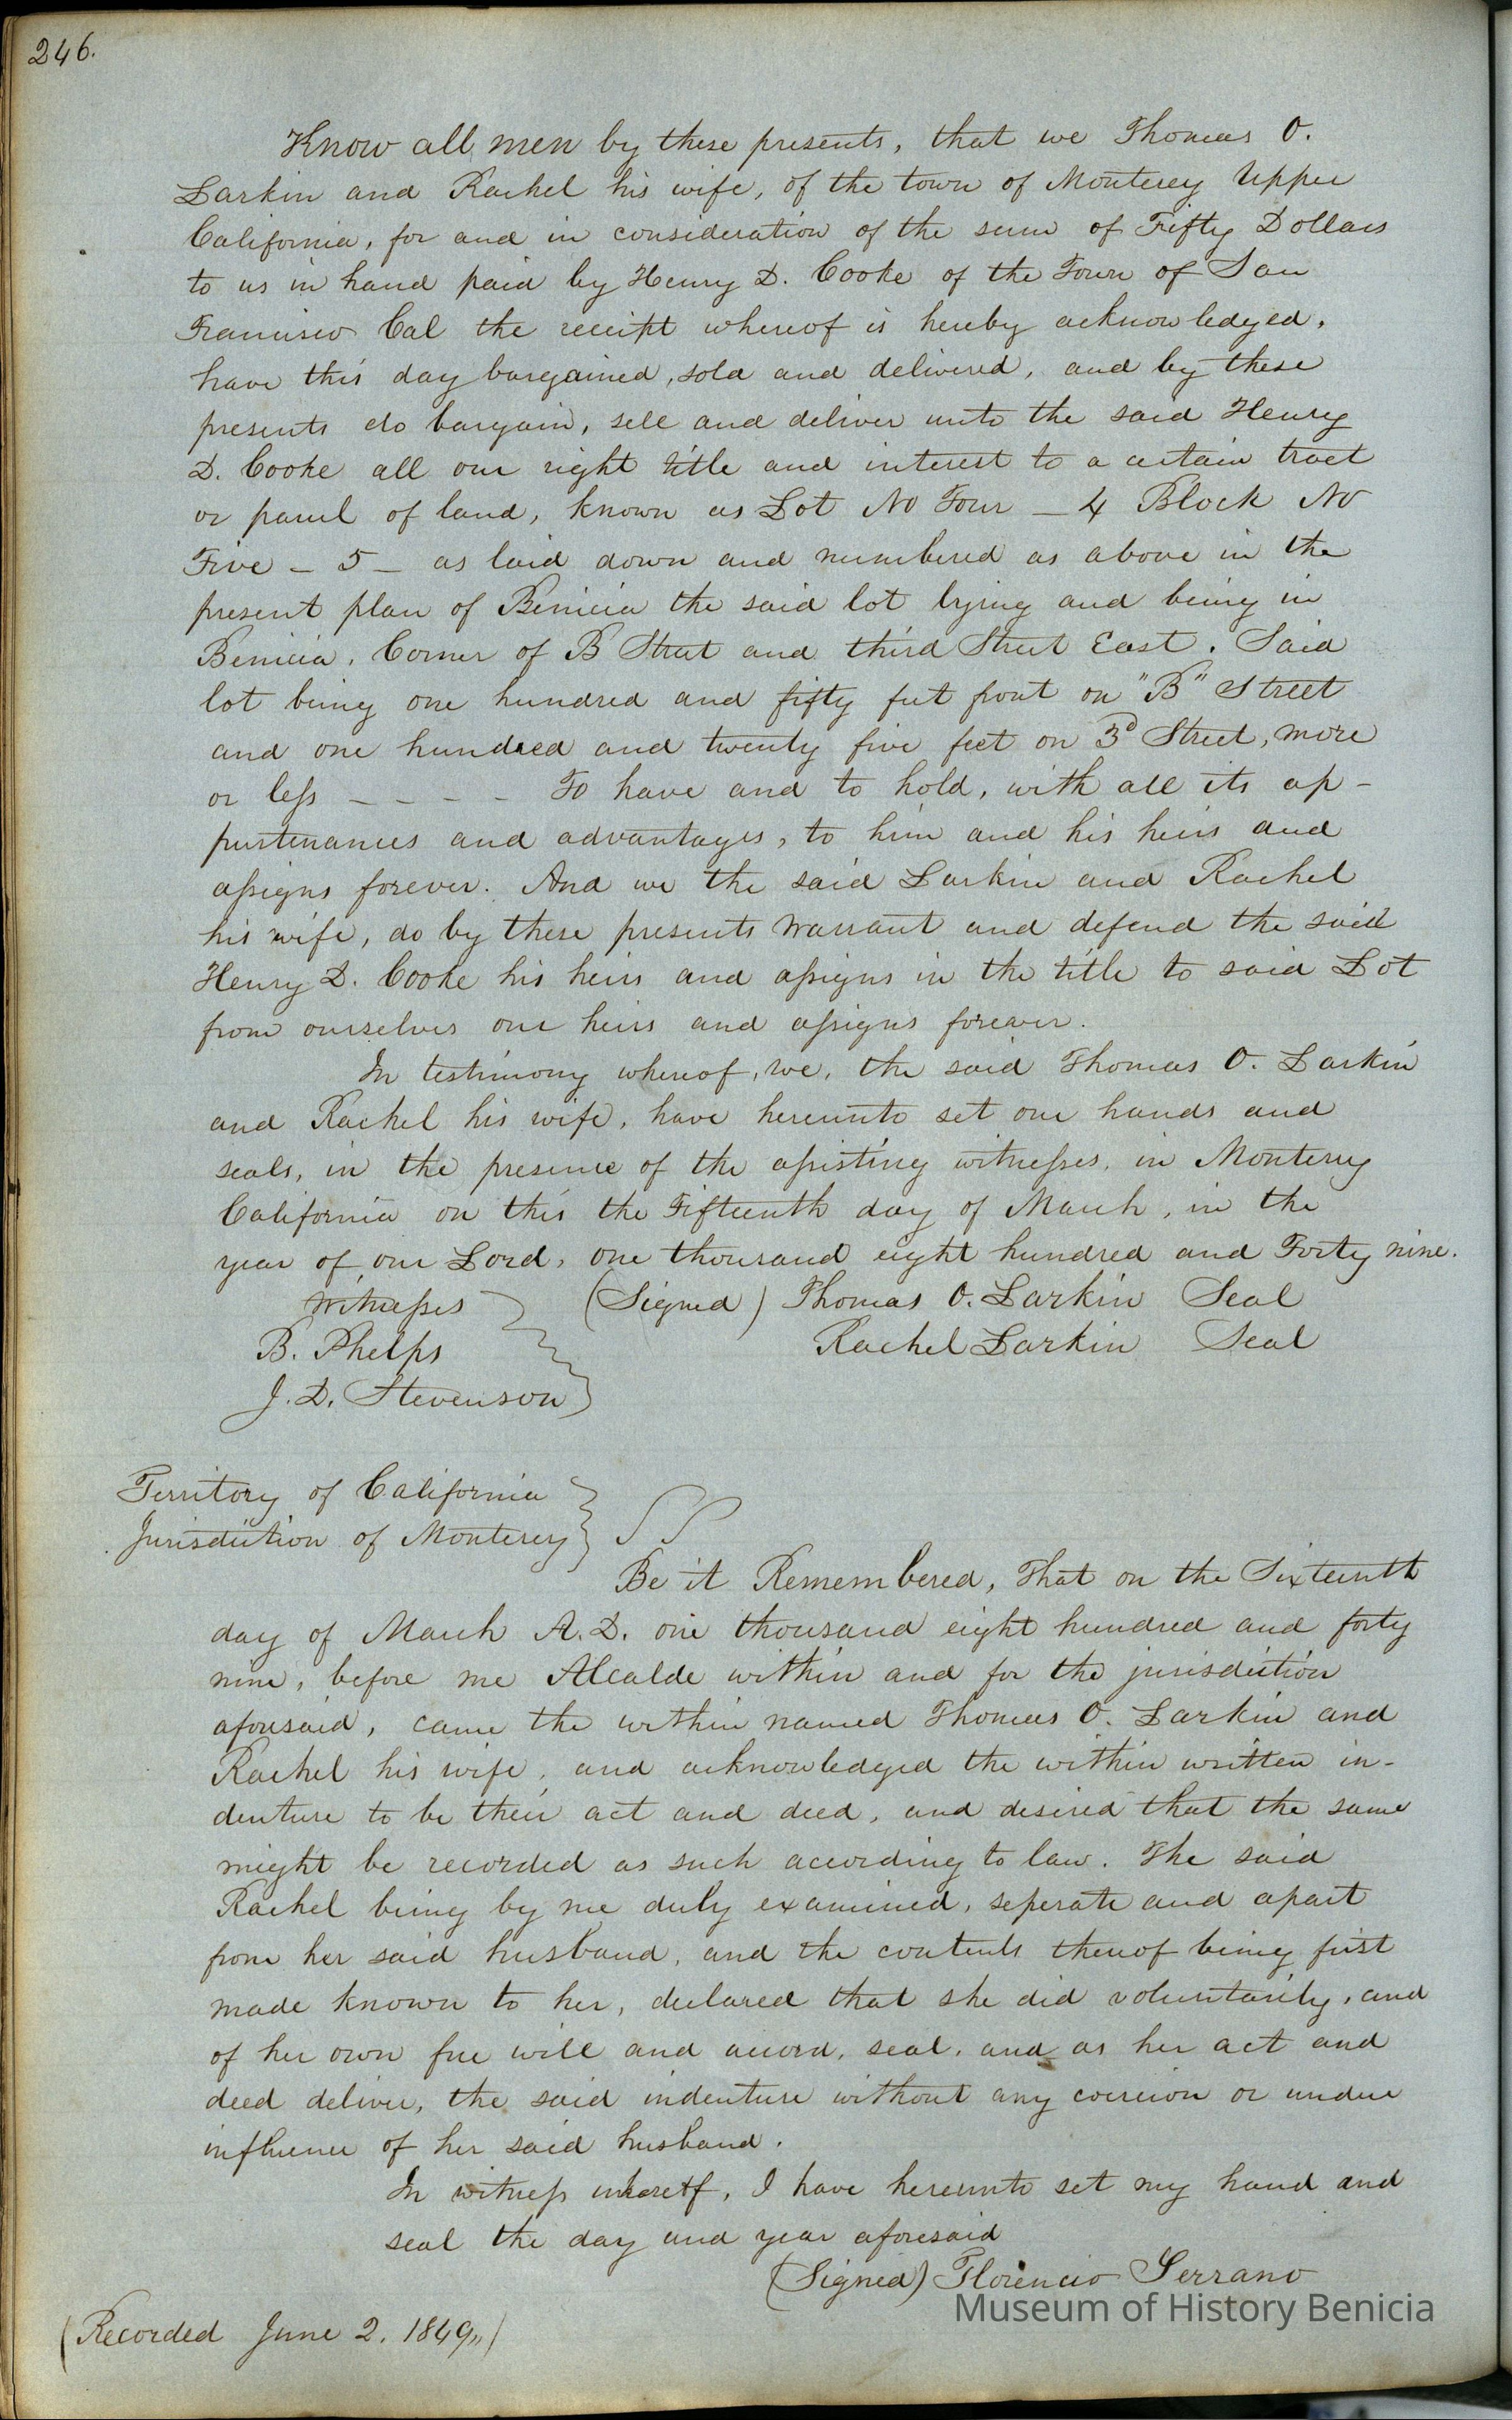 246.
Know all men by these presents, that we Thomas O.
Larkin and Rachel his wife, of the town of Monterey Upper
California, for and in consideration of the sum of Fifty Dollars
to us in hand paid by Henry D. Cooke of the Town of San
Francisco Cal the receipt whereof is hereby acknowledged,
have this day bargained, sold and delivered, and by these
presents do bargain, sell and deliver unto the said Henry
D. Cooke all our right title and interest to a certain tract
or parcel of land, known as Lot No Four – 4 Block No
Five – 5 – as laid down and numbered as above in the
present plan of Benicia the said lot lying and being in
Benicia, Corner of B Street and third Street East. Said
lot being one hundred and fifty feet front on "B" Street
and one hundred and twenty five feet on 3d Street, more
or less – – – – To have and to hold, with all its ap-
purtenances and advantages, to him and his heirs and
assigns forever. And we the said Larkin and Rachel
his wife, do by these presents warrant and defend the said
Henry D. Cooke his heirs and assigns in the title to said Lot
from ourselves our heirs and assigns forever.
In testimony whereof, we, the said Thomas O. Larkin
and Rachel his wife, have hereunto set our hands and
seals, in the presence of the assisting witnesses, in Monterey
California on this the Fifteenth day of March, in the
year of our Lord, one thousand eight hundred and Forty nine.
Witnesses (Signed) Thomas O. Larkin Seal
B. Phelps Rachel Larkin Seal
J. D. Stevenson
Territory of California
Jurisdiction of Monterey } SS
Be it Remembered, That on the Sixteenth
day of March A.D. one thousand eight hundred and forty
nine, before me Alcalde within and for the jurisdiction
aforesaid, came the within named Thomas O. Larkin and
Rachel his wife, and acknowledged the within written in-
denture to be their act and deed, and desired that the same
might be recorded as such according to law. The said
Rachel being by me duly examined, seperate and apart
from her said husband, and the contents thereof being first
made known to her, declared that she did voluntarily, and
of her own free will and accord, seal, and as her act and
deed deliver, the said indenture without any coercion or undue
influence of her said husband.
In witness whereof, I have hereunto set my hand and
seal the day and year aforesaid
(Signed) Florencio Serrano
Museum of History Benicia
(Recorded June 2. 1849,,)